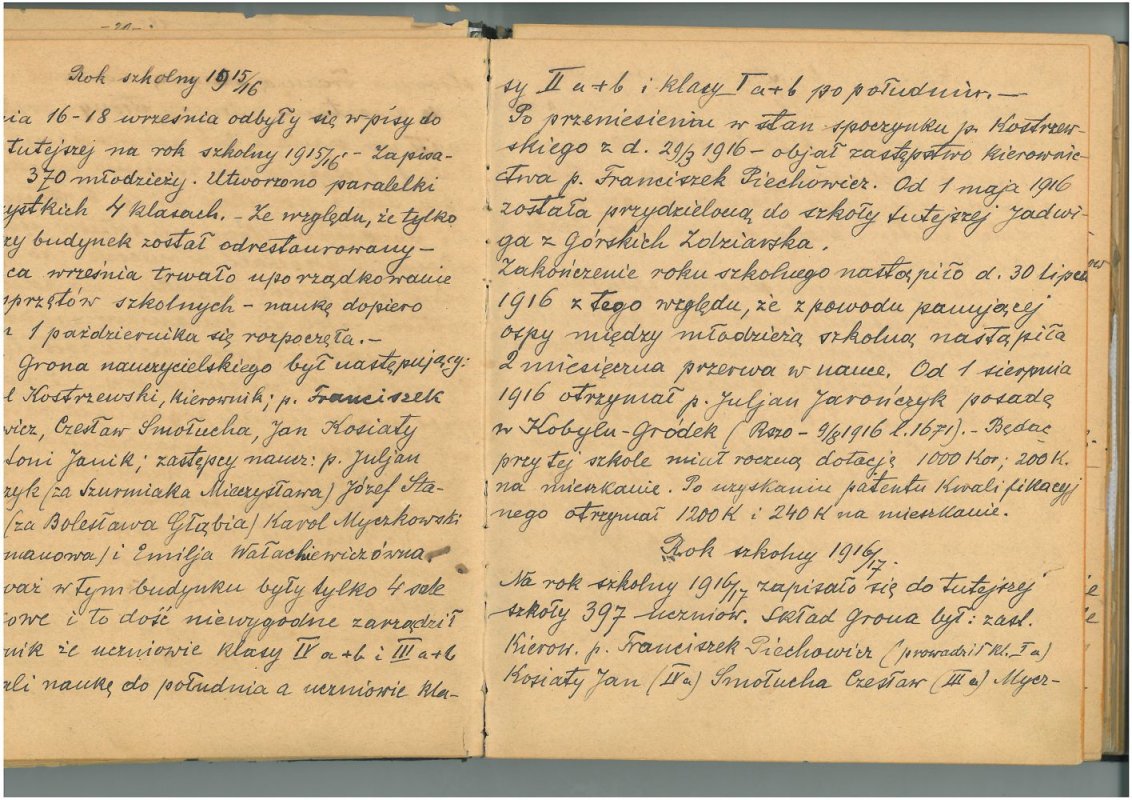 -20-
Rok szkolny 1915/16
nia 16-18 września odbyły się wpisy do
tutejszej na rok szkolny 1915/16 - Zapisa-
370 młodzieży. Utworzono paralelki
zystkich 4 klasach. - Ze względu, że tylko
zy budynek został odrestaurowany -
ca września trwało uporządkowanie
sprzętów szkolnych - naukę dopiero
1 października się rozpoczęła. -
Grona nauczycielskiego był następujący:
ł Kostrzewski, kierownik; p. Franciszek
wicz, Czesław Smołucha, Jan Kosiaty
toni Janik; zastępcy naucz: p. Juljan
zyk (za Szurmiaka Mieczysława) Józef Sta-
(za Bolesława Głąbia) Karol Myczkowski
manowa) i Emilja Wałachiewiczówna
waż w tym budynku były tylko 4 sale
owe i to dość niewygodne zarządził
nik że uczniowie klasy IV a+b i III a+b
ali naukę do południa a uczniowie kla-
sy II a+b i klasy I a+b po południu. -
Po przeniesieniu w stan spoczynku p. Kostrzew-
skiego z d. 29/3 1916 - objął zastępstwo kierownic-
twa p. Franciszek Piechowicz. Od 1 maja 1916
została przydzieloną do szkoły tutejszej Jadwi-
ga z Górskich Zdziarska.
Zakończenie roku szkolnego nastąpiło d. 30 lipca
1916 z tego względu, że z powodu panującej
ospy między młodzieżą szkolną nastąpiła
2 miesięczna przerwa w nauce. Od 1 sierpnia
1916 otrzymał p. Juljan Jarończyk posadę
w Kobylu-Gródek (Rszo - 9/8 1916 l. 1671). - Będąc
przy tej szkole miał roczną dotację 1000 Kor; 200 K.
na mieszkanie. Po uzyskaniu patentu kwalifikacyj
nego otrzymał 1200 K i 240 K na mieszkanie.
Rok szkolny 1916/17.
Na rok szkolny 1916/17 zapisało się do tutejszej
szkoły 397 uczniów. Skład Grona był: zast.
Kierow. p. Franciszek Piechowicz (prowadził kl. I a)
Kosiaty Jan (IV a) Smołucha Czesław (III a) Mycz-